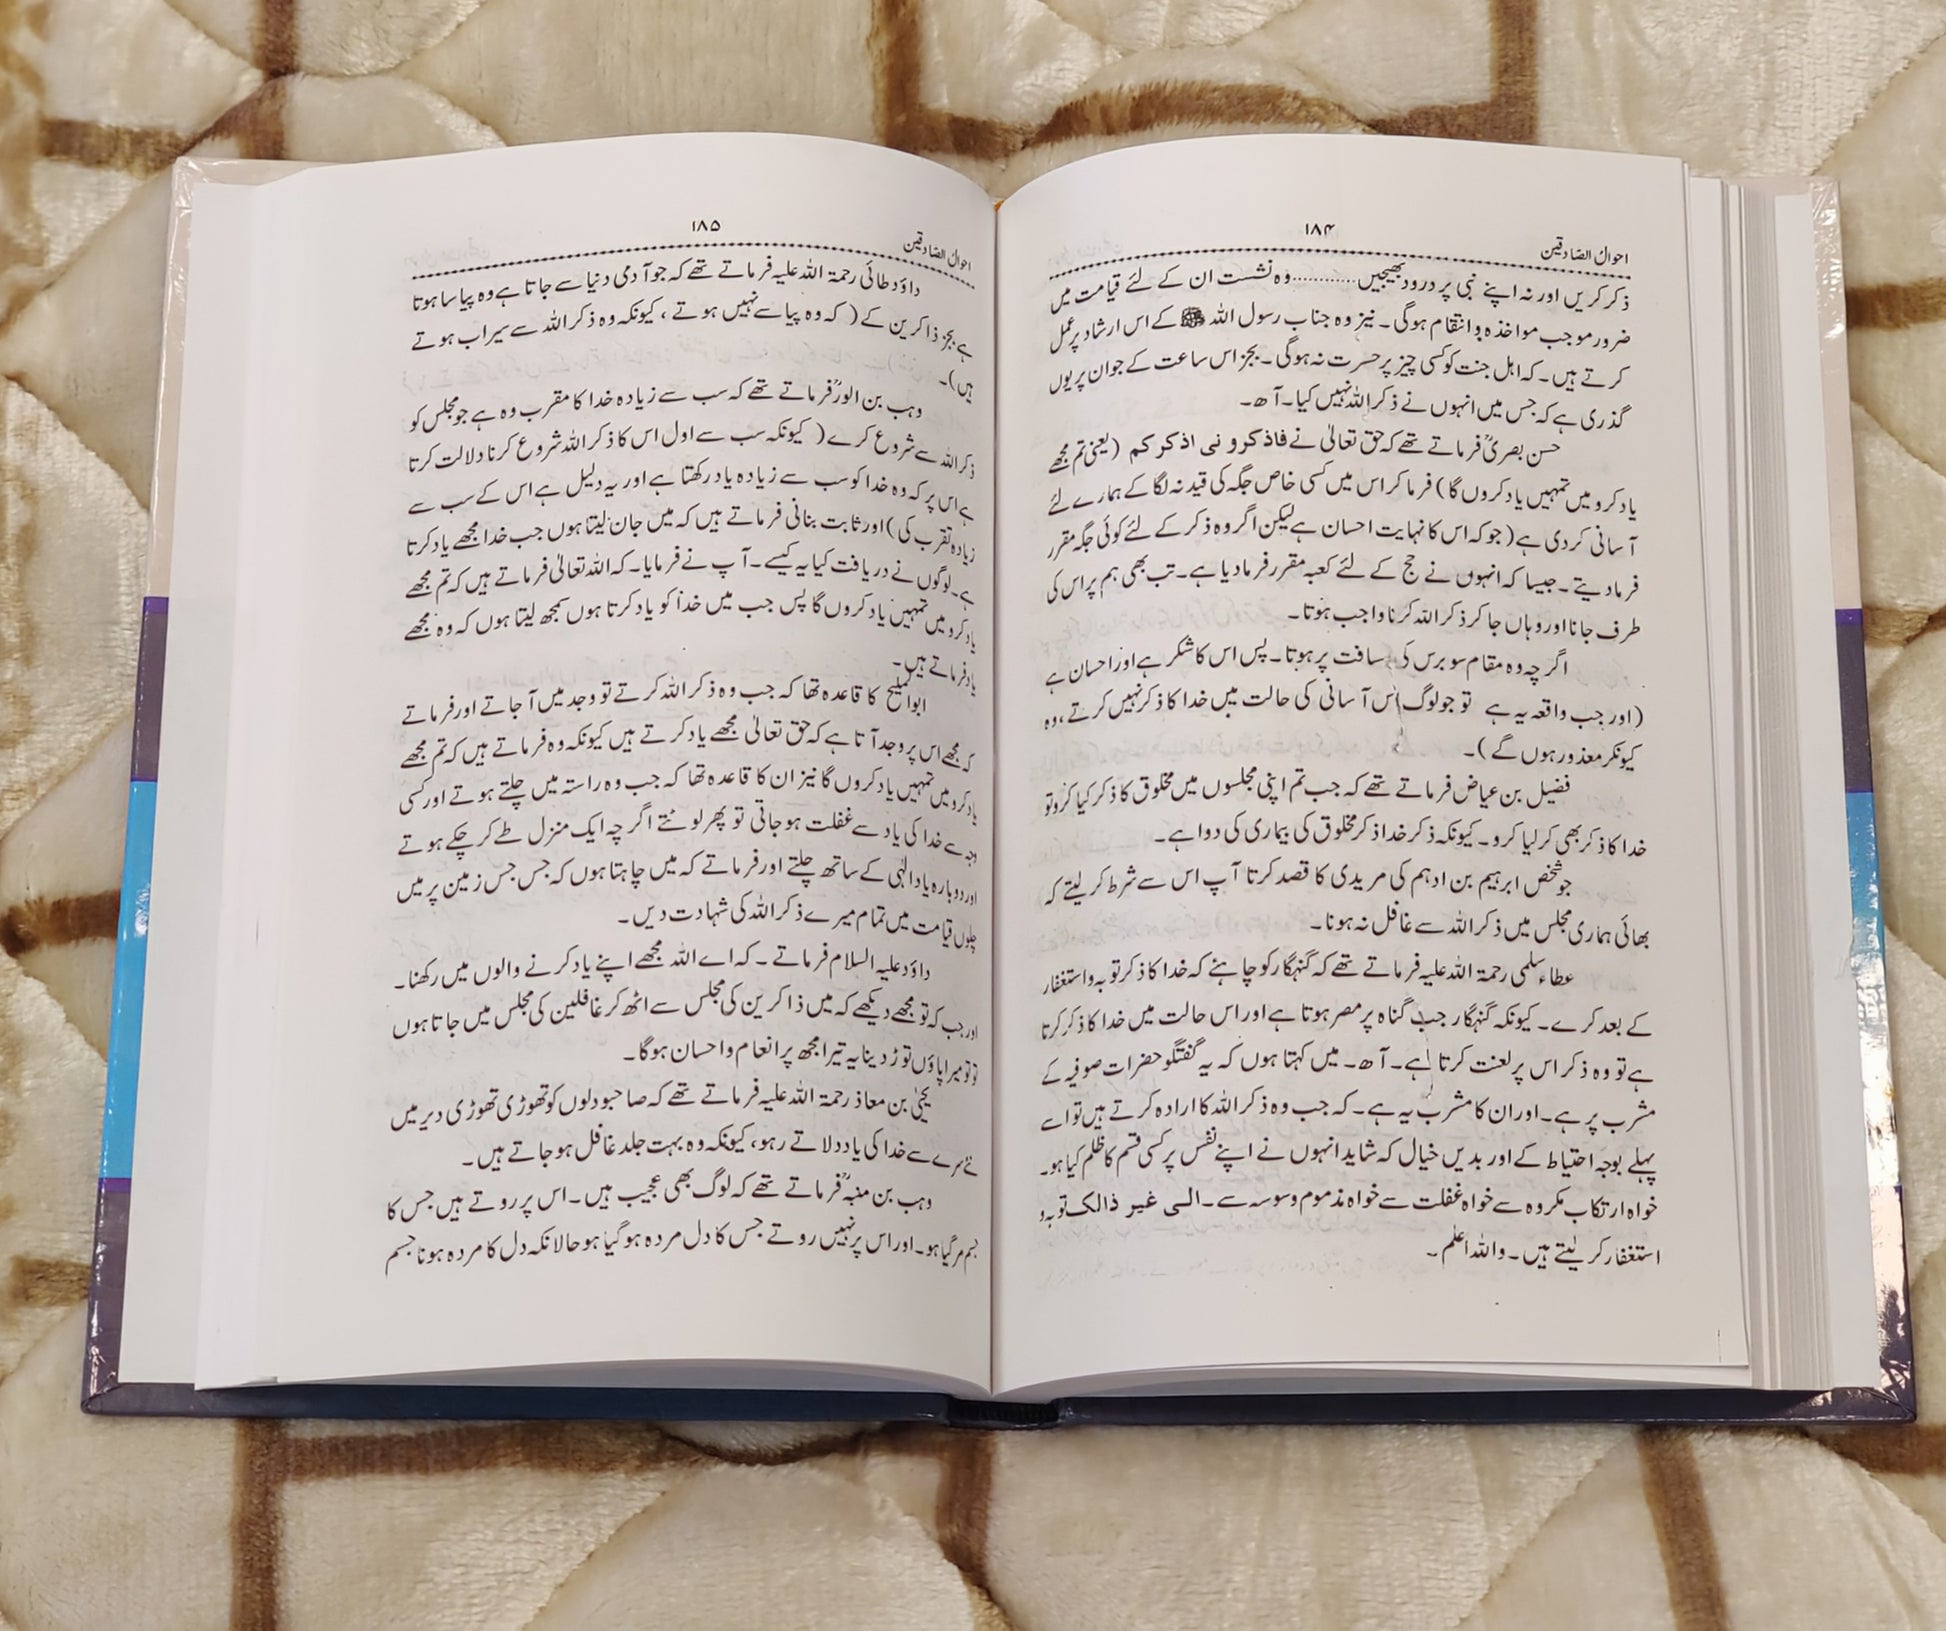 ۱۸۴
احوال الصادقین
ذکر کریں اور نہ اپنے نبی پر درود بھیجیں............وہ نشست ان کے لئے قیامت میں
ضرور موجب مواخذہ و انتقام ہوگی۔ نیز وہ جناب رسول اللہ ﷺ کے اس ارشاد پر عمل
کرتے ہیں۔ کہ اہل جنت کو کسی چیز پر حسرت نہ ہوگی۔ بجز اس ساعت کے جوان پر یوں
گذری ہے کہ جس میں انہوں نے ذکر اللہ نہیں کیا۔ آھ۔
حسن بصریؒ فرماتے تھے کہ حق تعالیٰ نے فاذکرونی اذکرکم (یعنی تم مجھے
یاد کرو میں تمہیں یاد کروں گا) فرما کر اس میں کسی خاص جگہ کی قید نہ لگا کے ہمارے لئے
آسانی کردی ہے (جو کہ اس کا نہایت احسان ہے لیکن اگر وہ ذکر کے لئے کوئی جگہ مقرر
فرمادیتے۔ جیسا کہ انہوں نے حج کے لئے کعبہ مقرر فرمادیا ہے۔ تب بھی ہم پر اس کی
طرف جانا اور وہاں جا کر ذکر اللہ کرنا واجب ہوتا۔
اگر چہ وہ مقام سو برس کی مسافت پر ہوتا۔ پس اس کا شکر ہے اور احسان ہے
(اور جب واقعہ یہ ہے تو جو لوگ اس آسانی کی حالت میں خدا کا ذکر نہیں کرتے، وہ
کیونکر معذور ہوں گے)۔
فضیل بن عیاض فرماتے تھے کہ جب تم اپنی مجلسوں میں مخلوق کا ذکر کیا کرو تو
خدا کا ذکر بھی کر لیا کرو۔ کیونکہ ذکر خدا ذکر مخلوق کی بیماری کی دوا ہے۔
جو شخص ابرہیم بن ادہم کی مریدی کا قصد کرتا آپ اس سے شرط کر لیتے کہ
بھائی ہماری مجلس میں ذکر اللہ سے غافل نہ ہونا۔
عطاء سلمی رحمۃ اللہ علیہ فرماتے تھے کہ گنہگار کو چاہئے کہ خدا کا ذکر توبہ و استغفار
کے بعد کرے۔ کیونکہ گنہگار جب گناہ پر مصر ہوتا ہے اور اس حالت میں خدا کا ذکر کرتا
ہے تو وہ ذکر اس پر لعنت کرتا ہے۔ آھ۔ میں کہتا ہوں کہ یہ گفتگو حضرات صوفیہ کے
مشرب پر ہے۔ اور ان کا مشرب یہ ہے۔ کہ جب وہ ذکر اللہ کا ارادہ کرتے ہیں تو اسے
پہلے بوجہ احتیاط کے اور بدیں خیال کہ شاید انہوں نے اپنے نفس پر کسی قسم کا ظلم کیا ہو۔
خواہ ارتکاب مکروہ سے خواہ غفلت سے خواہ مذموم وسوسہ سے۔ الی غیر ذالک توبہ و
استغفار کر لیتے ہیں۔ واللہ اعلم۔
۱۸۵
احوال الصادقین
داؤد طائی رحمۃ اللہ علیہ فرماتے تھے کہ جو آدمی دنیا سے جاتا ہے وہ پیاسا ہوتا
ہے بجز ذاکرین کے (کہ وہ پیاسے نہیں ہوتے، کیونکہ وہ ذکر اللہ سے سیراب ہوتے
ہیں)۔
وہب بن الوردؒ فرماتے تھے کہ سب سے زیادہ خدا کا مقرب وہ ہے جو مجلس کو
ذکر اللہ سے شروع کرے (کیونکہ سب سے اول اس کا ذکر اللہ شروع کرنا دلالت کرتا
ہے اس پر کہ وہ خدا کو سب سے زیادہ یاد رکھتا ہے اور یہ دلیل ہے اس کے سب سے
زیادہ تقرب کی) اور ثابت بنانی فرماتے ہیں کہ میں جان لیتا ہوں جب خدا مجھے یاد کرتا
ہے۔ لوگوں نے دریافت کیا یہ کیسے۔ آپ نے فرمایا۔ کہ اللہ تعالیٰ فرماتے ہیں کہ تم مجھے
یاد کرو میں تمہیں یاد کروں گا پس جب میں خدا کو یاد کرتا ہوں سمجھ لیتا ہوں کہ وہ مجھے
یاد فرماتے ہیں۔
ابوالملیح کا قاعدہ تھا کہ جب وہ ذکر اللہ کرتے تو وجد میں آجاتے اور فرماتے
کہ مجھے اس پر وجد آتا ہے کہ حق تعالیٰ مجھے یاد کرتے ہیں کیونکہ وہ فرماتے ہیں کہ تم مجھے
یاد کرو میں تمہیں یاد کروں گا نیز ان کا قاعدہ تھا کہ جب وہ راستہ میں چلتے ہوتے اور کسی
وجہ سے خدا کی یاد سے غفلت ہوجاتی تو پھر لوٹتے اگر چہ ایک منزل طے کر چکے ہوتے
اور دوبارہ یاد الٰہی کے ساتھ چلتے اور فرماتے کہ میں چاہتا ہوں کہ جس جس زمین پر میں
چلوں قیامت میں تمام میرے ذکر اللہ کی شہادت دیں۔
داؤد علیہ السلام فرماتے۔ کہ اے اللہ مجھے اپنے یاد کرنے والوں میں رکھنا۔
اور جب کہ تو مجھے دیکھے کہ میں ذاکرین کی مجلس سے اٹھ کر غافلین کی مجلس میں جاتا ہوں
تو تو میرا پاؤں توڑ دینا یہ تیرا مجھ پر انعام و احسان ہوگا۔
یحییٰ بن معاذ رحمۃ اللہ علیہ فرماتے تھے کہ صاحبو دلوں کو تھوڑی تھوڑی دیر میں
نئے سرے سے خدا کی یاد دلاتے رہو، کیونکہ وہ بہت جلد غافل ہوجاتے ہیں۔
وہب بن منبہؒ فرماتے تھے کہ لوگ بھی عجیب ہیں۔ اس پر روتے ہیں جس کا
جسم مر گیا ہو۔ اور اس پر نہیں روتے جس کا دل مردہ ہو گیا ہو حالانکہ دل کا مردہ ہونا جسم